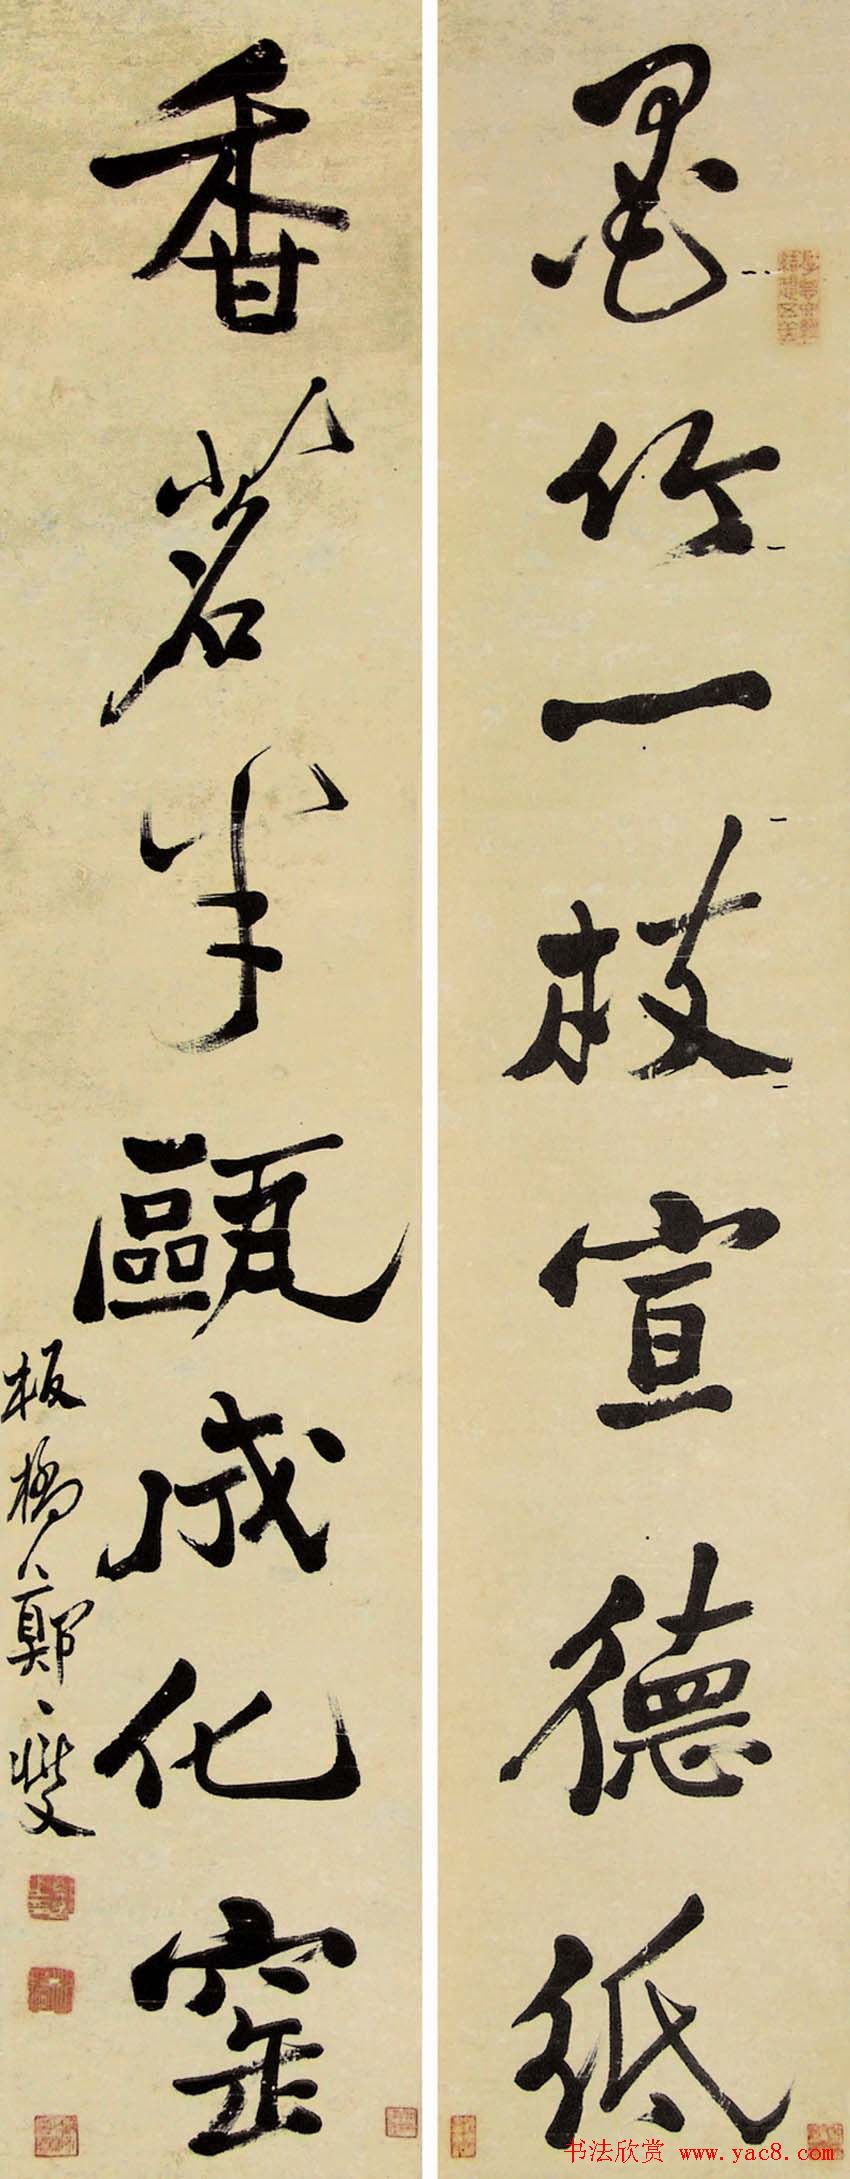 墨竹一枝宣德紙
香茗半甌成化窑
板橋鄭燮
书法欣赏 www.yac8.com